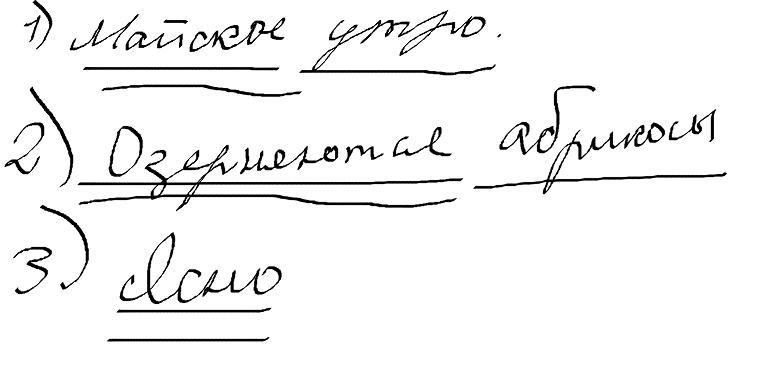 1) Майское утро.
2) абрикосы
3) Ясно